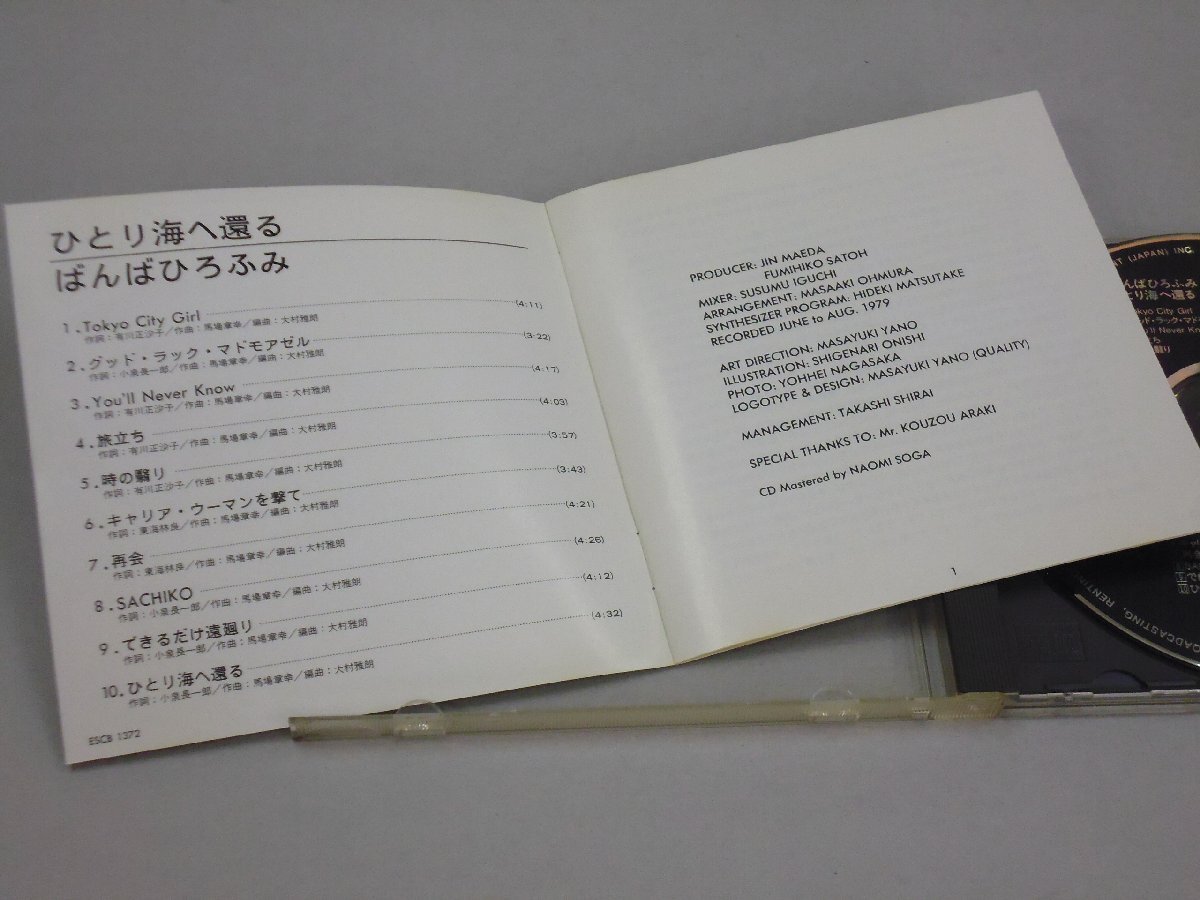 ひとり海へ還る
ばんばひろふみ
1.Tokyo City Girl (4:11)
作詞：有川正沙子／作曲：馬場章幸／編曲：大村雅朗
2.グッド・ラック・マドモアゼル (3:22)
作詞：小泉長一郎／作曲：馬場章幸／編曲：大村雅朗
3.You'll Never Know (4:17)
作詞：有川正沙子／作曲：馬場章幸／編曲：大村雅朗
4.旅立ち (4:03)
作詞：有川正沙子／作曲：馬場章幸／編曲：大村雅朗
5.時の翳り (3:57)
作詞：有川正沙子／作曲：馬場章幸／編曲：大村雅朗
6.キャリア・ウーマンを撃て (3:43)
作詞：東海林良／作曲：馬場章幸／編曲：大村雅朗
7.再会 (4:21)
作詞：東海林良／作曲：馬場章幸／編曲：大村雅朗
8.SACHIKO (4:26)
作詞：小泉長一郎／作曲：馬場章幸／編曲：大村雅朗
9.できるだけ遠廻り (4:12)
作詞：小泉長一郎／作曲：馬場章幸／編曲：大村雅朗
10.ひとり海へ還る (4:32)
作詞：小泉長一郎／作曲：馬場章幸／編曲：大村雅朗
ESCB 1372
PRODUCER: JIN MAEDA
FUMIHIKO SATOH
MIXER: SUSUMU IGUCHI
ARRANGEMENT: MASAAKI OHMURA
SYNTHESIZER PROGRAM: HIDEKI MATSUTAKE
RECORDED JUNE to AUG. 1979
ART DIRECTION: MASAYUKI YANO
ILLUSTRATION: SHIGENARI ONISHI
PHOTO: YOHHEI NAGASAKA
LOGOTYPE & DESIGN: MASAYUKI YANO (QUALITY)
MANAGEMENT: TAKASHI SHIRAI
SPECIAL THANKS TO: Mr. KOUZOU ARAKI
CD Mastered by NAOMI SOGA
1
NT (JAPAN) INC.
んばひろふみ
とり海へ還る
okyo City Girl
ド・ラック・マドモ
u'll Never Kn
OADCASTING, RENTING